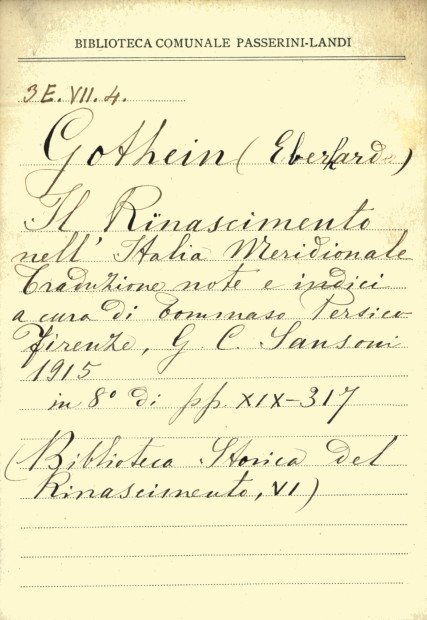 BIBLIOTECA COMUNALE PASSERINI-LANDI
3E. VII. 4.
Gothein (Eberhardo)
Il Rinascimento
nell' Italia Meridionale
Traduzione note e indici
a cura di Tommaso Persico
Firenze, G. C. Sansoni
1915
in 8° di pp. XIX-317
(Biblioteca Storica del
Rinascimento, VI)